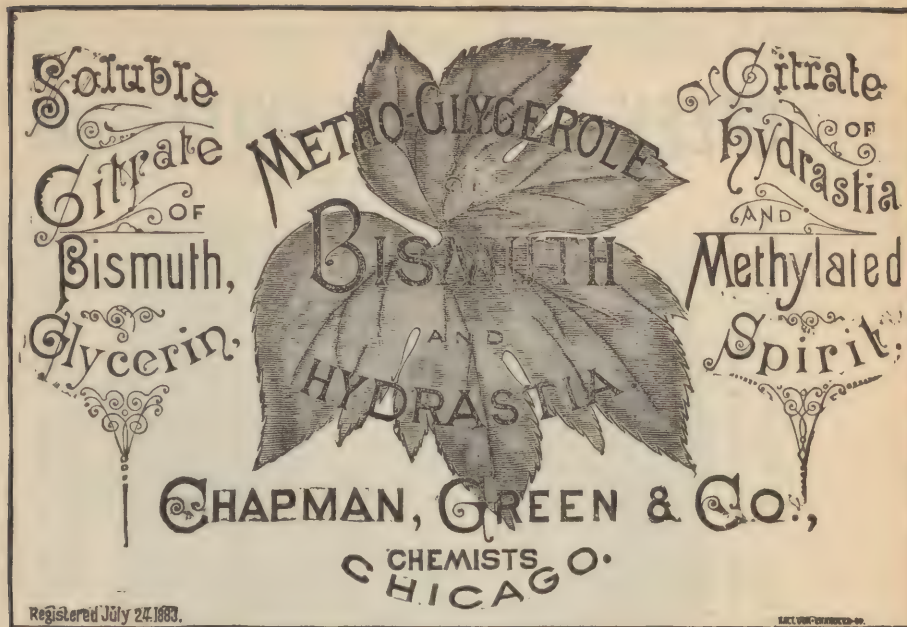 Soluble
Citrate
OF
Bismuth,
Glycerin,
METHO-GLYCEROLE
OF
BISMUTH
AND
HYDRASTIA
Citrate
OF
Hydrastia
AND
Methylated
Spirit.
CHAPMAN, GREEN & CO.,
CHEMISTS
CHICAGO.
Registered July 24. 1883.